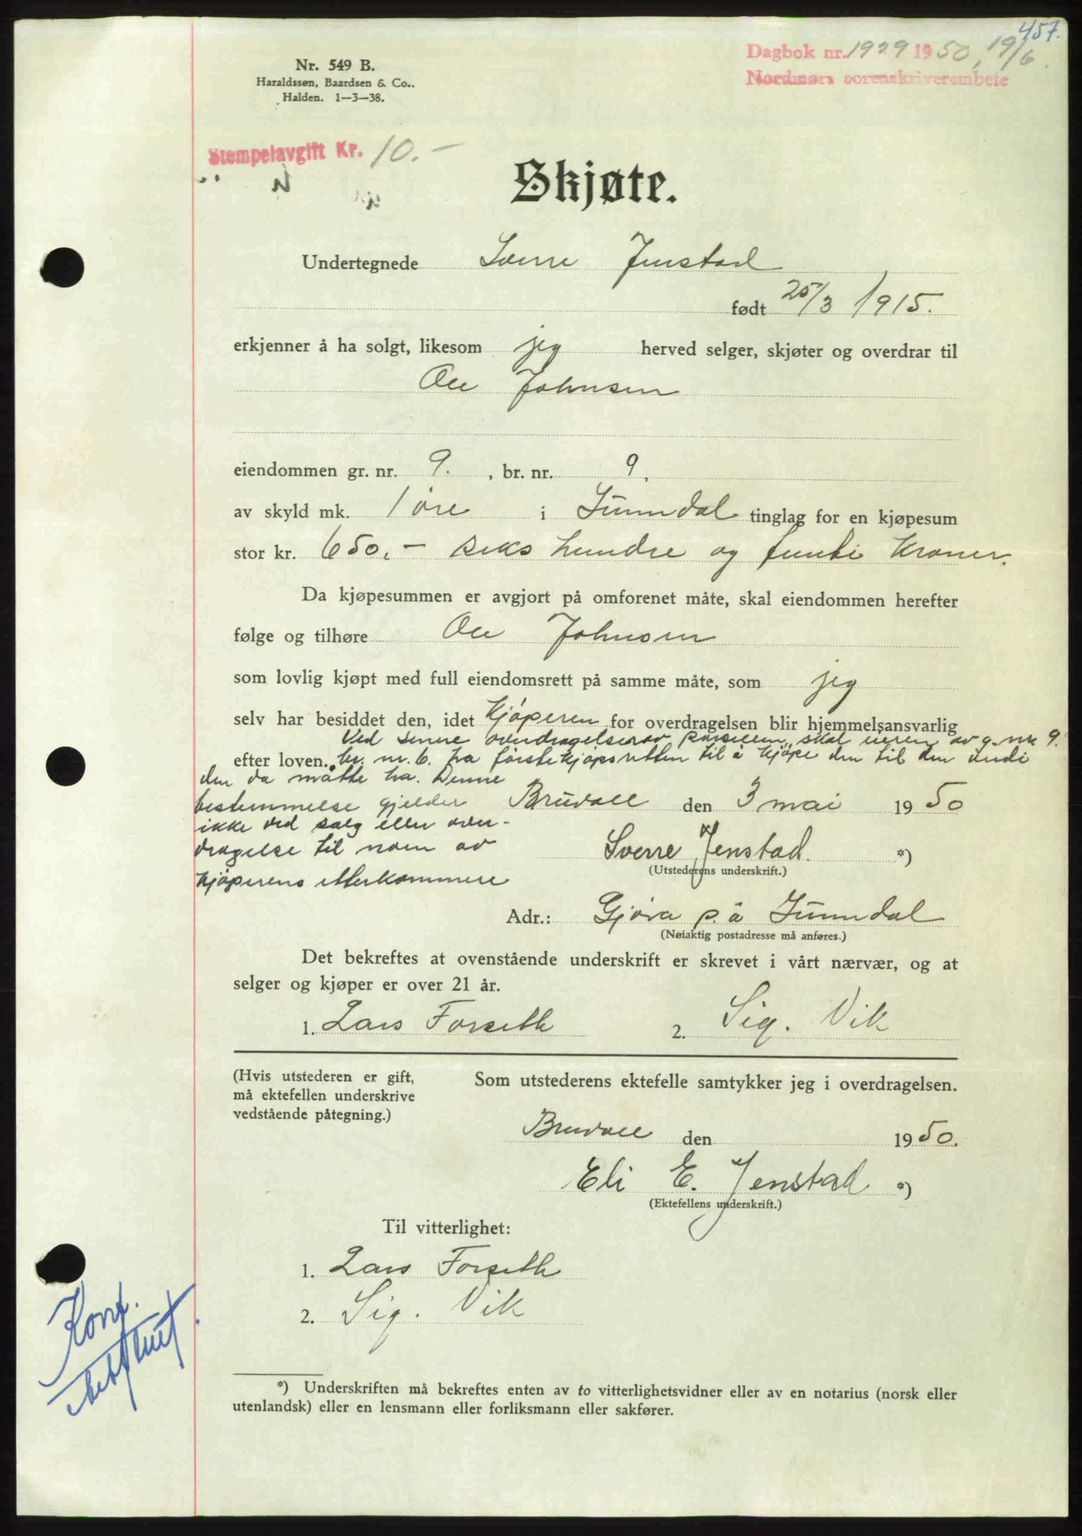 457.
Dagbok nr. 1929 1950, 19/6
Nordmørs sorenskriverembete
Nr. 549 B.
Haraldssen, Baardsen & Co..
Halden. 1—3—38.
Stempelavgift Kr. 10.-
Skjøte.
Undertegnede Sverre Jenstad
født 25/3 1915.
erkjenner å ha solgt, likesom jeg herved selger, skjøter og overdrar til
Ole Johnsen
eiendommen gr. nr. 9. , br. nr. 9,
av skyld mk. 1 øre i Sunndal tinglag for en kjøpesum
stor kr. 650,- seks hundre og femti kroner.
Da kjøpesummen er avgjort på omforenet måte, skal eiendommen herefter
følge og tilhøre Ole Johnsen
som lovlig kjøpt med full eiendomsrett på samme måte, som jeg
selv har besiddet den, idet kjøperen for overdragelsen blir hjemmelsansvarlig
Ved senere overdragelser av parsellen, skal eieren av g. nr. 9.
efter loven. br. nr. 6. ha førstekjøpsretten til å kjøpe den til den verdi
den da måtte ha. Denne
bestemmelse gjelder Bruvoll den 3 mai 1950
ikke ved salg eller over-
dragelse til noen av Sverre Jenstad. *)
(Utstederens underskrift.)
kjøperens etterkommere
Adr.: Gjøra p. å Sunndal
(Nøiaktig postadresse må anføres.)
Det bekreftes at ovenstående underskrift er skrevet i vårt nærvær, og at
selger og kjøper er over 21 år.
1. Lars Forseth 2. Sig. Vik
(Hvis utstederen er gift, Som utstederens ektefelle samtykker jeg i overdragelsen.
må ektefellen underskrive
vedstående påtegning.)
Bruvoll den 1950.
Eli E. Jenstad *)
(Ektefellens underskrift.)
Til vitterlighet:
1. Lars Forseth
2. Sig. Vik
Konf.
*) Underskriften må bekreftes enten av to vitterlighetsvidner eller av en notarius (norsk eller
utenlandsk) eller en lensmann eller forliksmann eller sakfører.